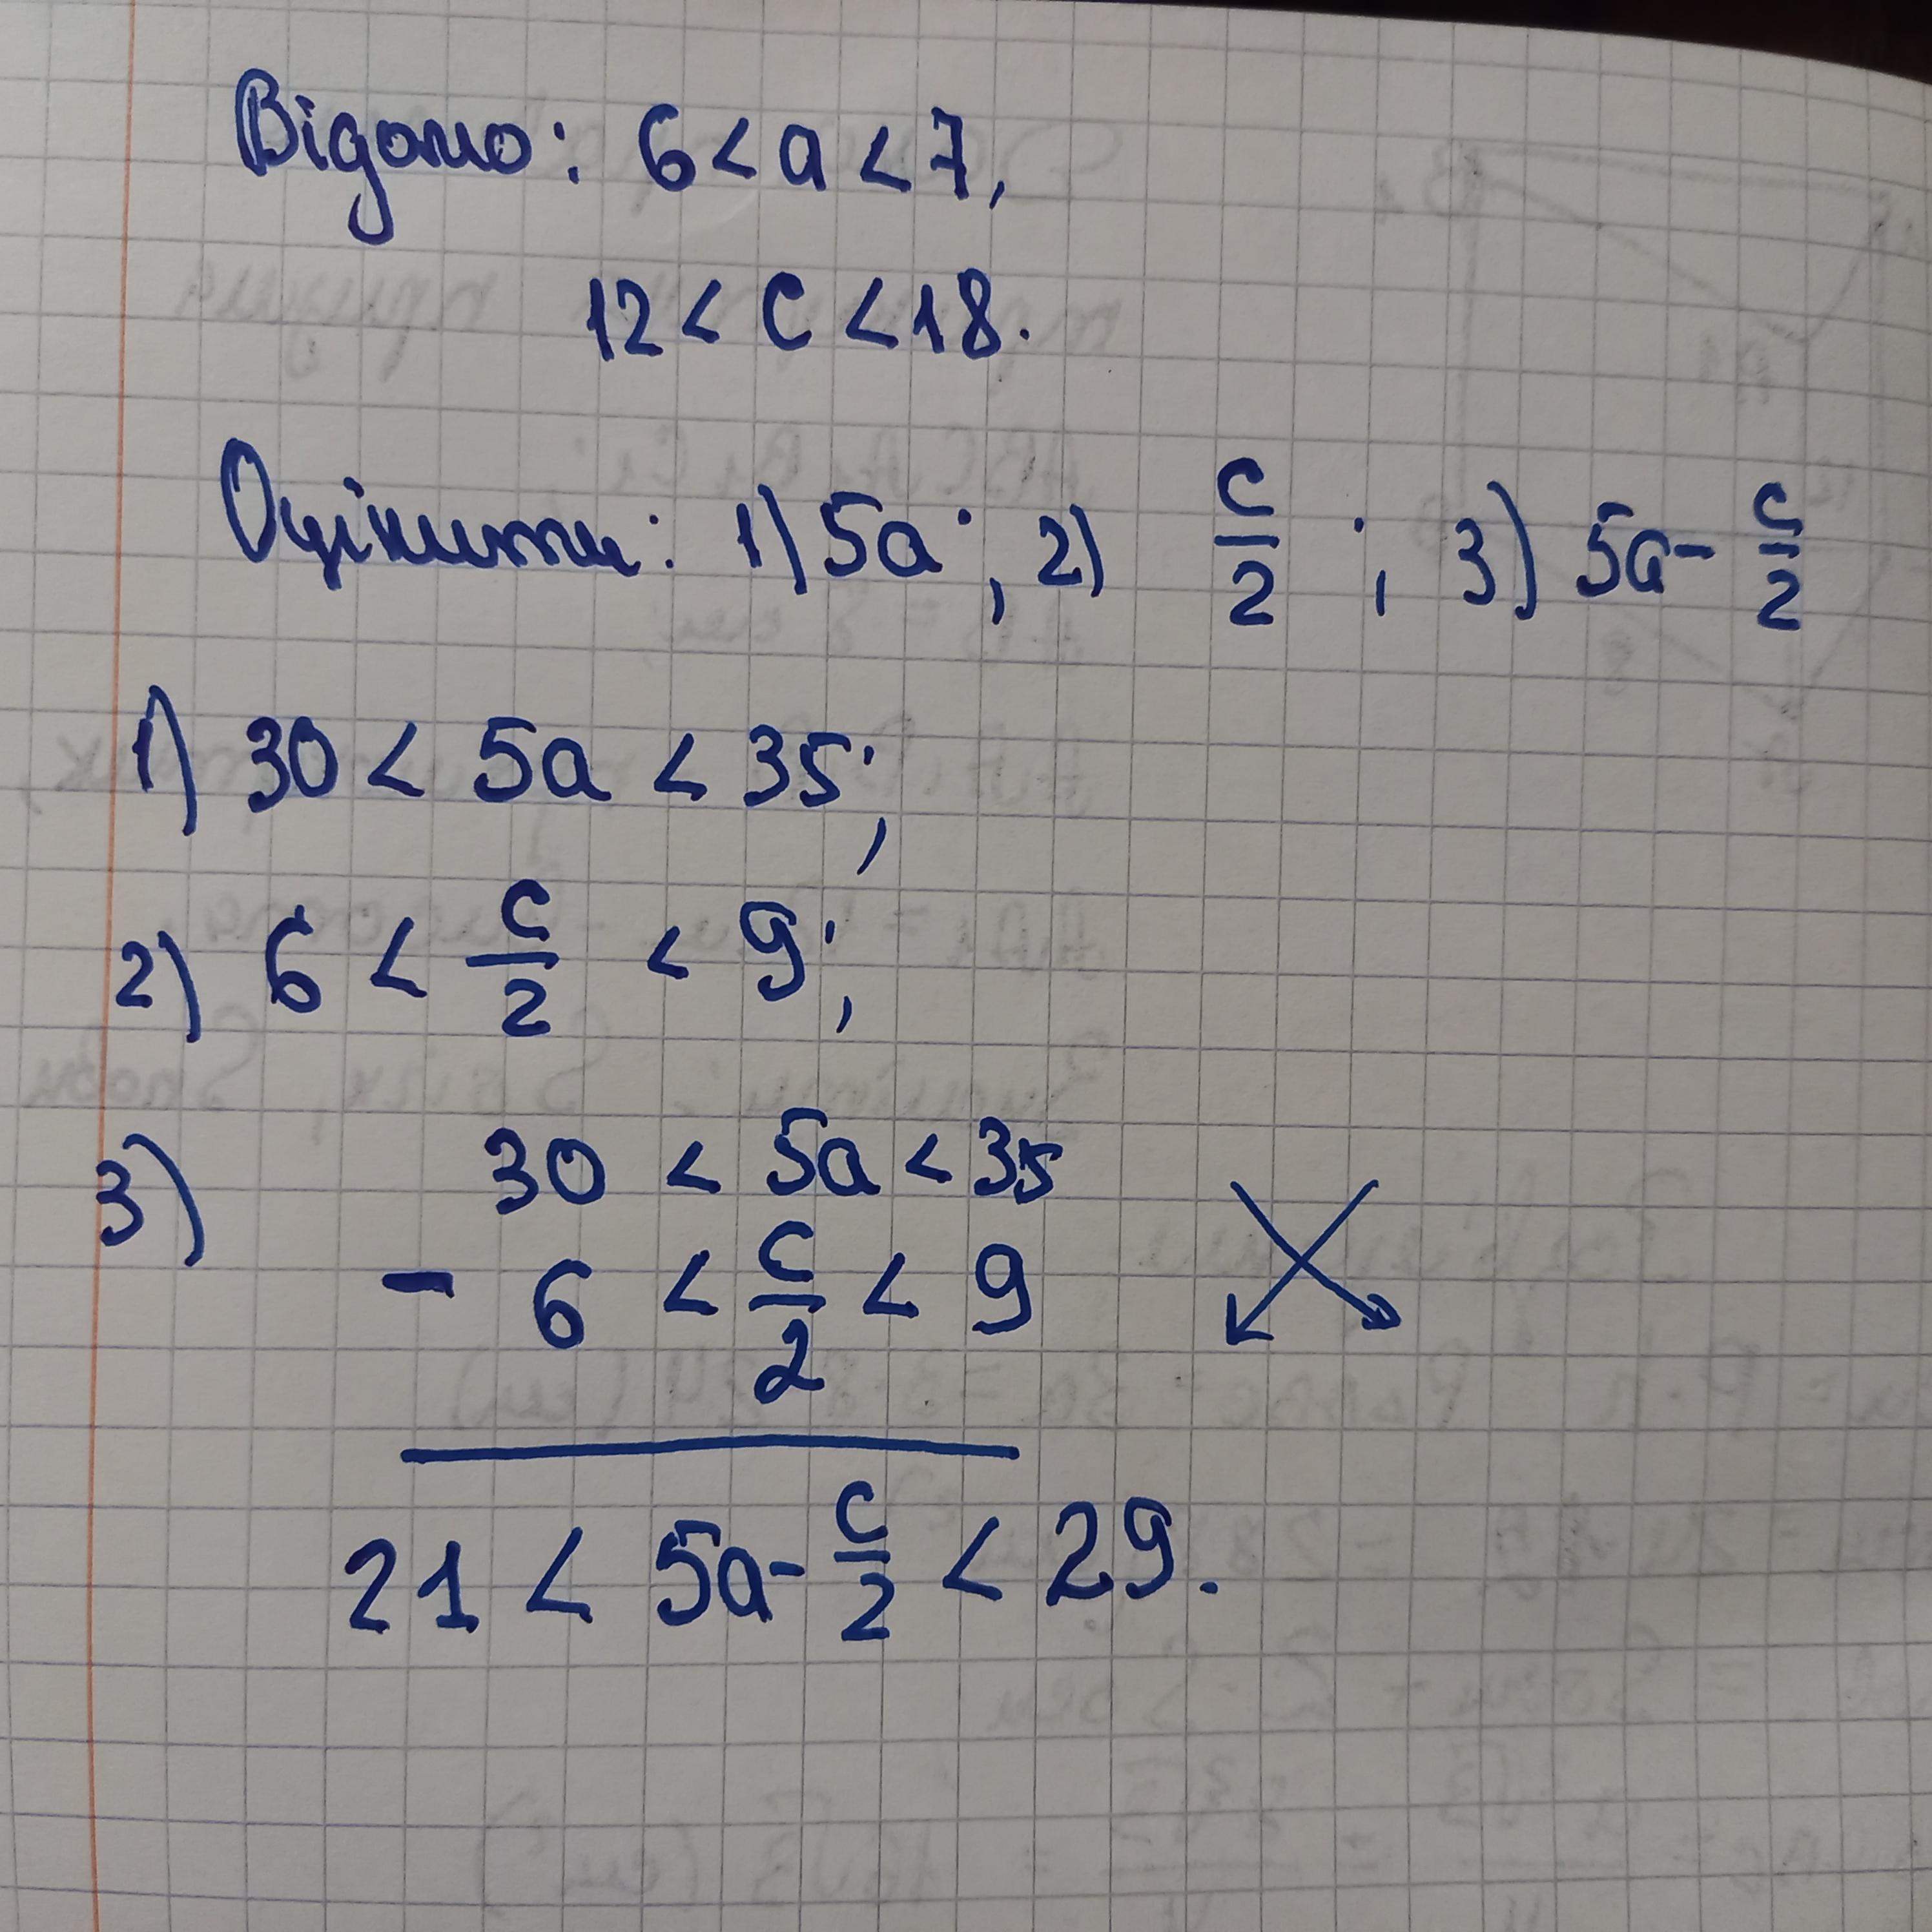 Відомо: 6 < a < 7,
12 < c < 18.
Оцінити: 1) 5a; 2) c/2; 3) 5a - c/2
1) 30 < 5a < 35;
2) 6 < c/2 < 9;
3) 30 < 5a < 35
- 6 < c/2 < 9
21 < 5a - c/2 < 29.